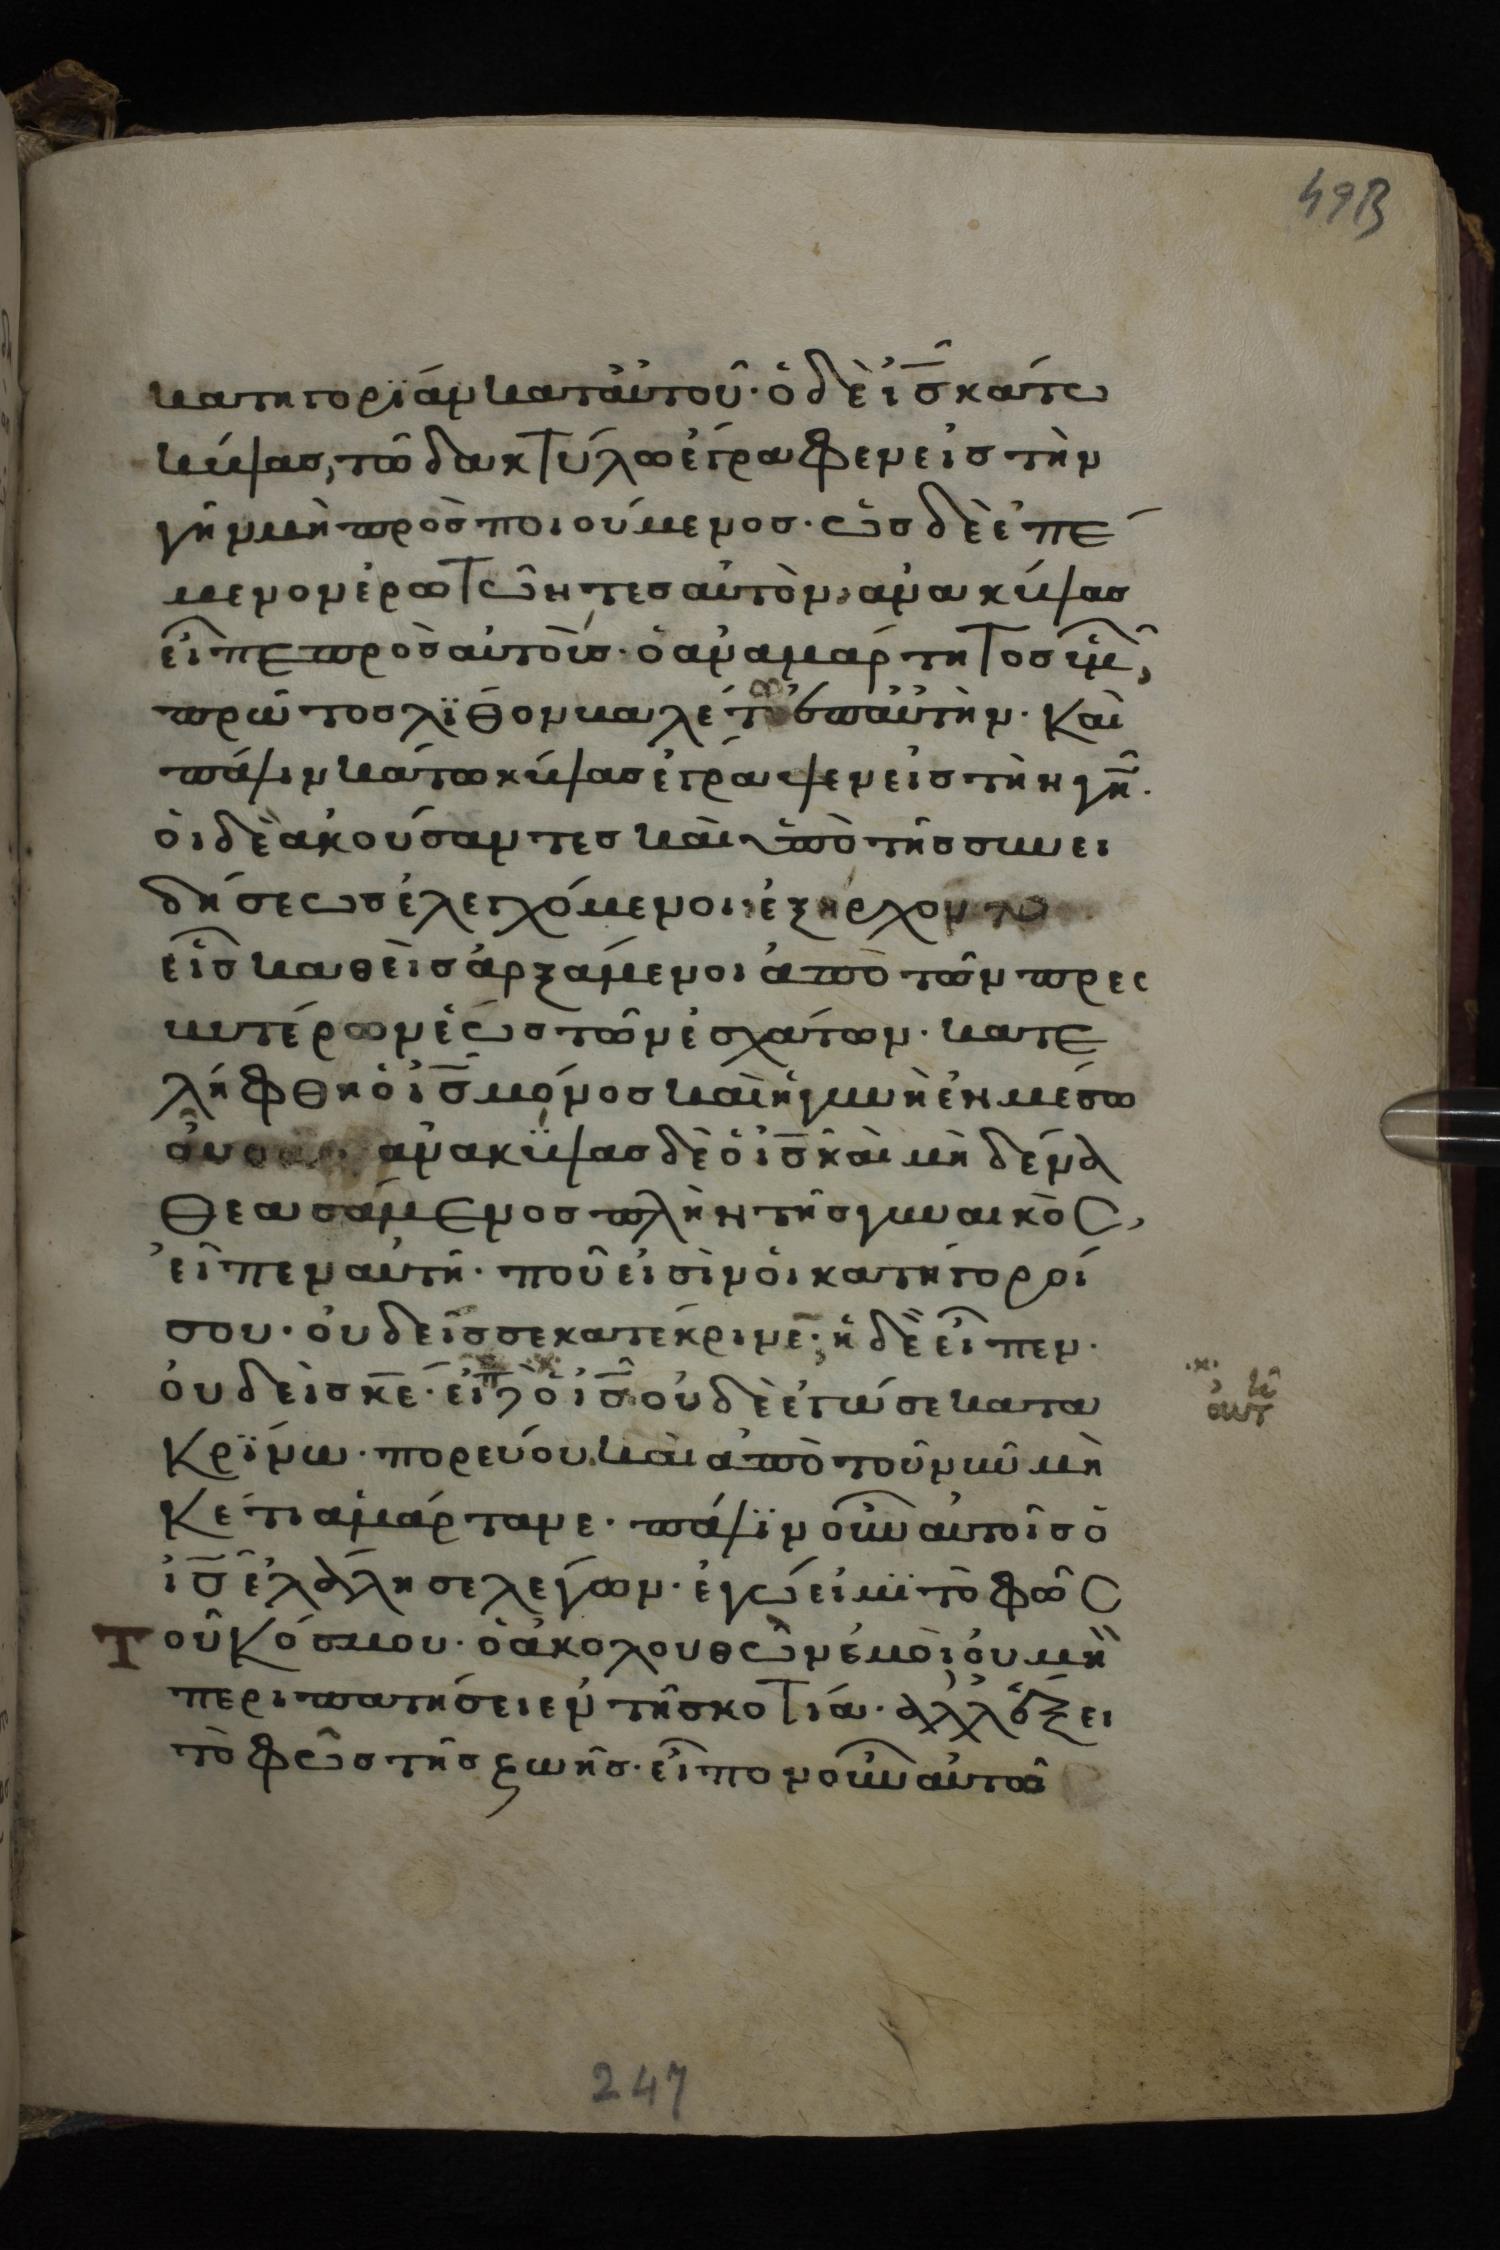 49B
κατηγορϊάν κατ ἀυτοῦ· ὁ δὲ ἰ̅σ̅ κάτω
κύψας, τῶ δακτύλω ἔγραφεν εἰς τὴν
γῆν μὴ προσποιούμενος· ὡς δὲ ἐπέ
μενον ἐρωτῶντες αὐτὸν, ἀνακύψας
εἶπε πρὸς αὐτοὺς· ὁ ἀναμάρτητος ὑμ̅,
πρῶτος λϊθον βαλέτω ἐπ ἀυτὴν· καὶ
πάλιν κάτω κύψας ἔγραψεν εἰς τὴν γῆ̅·
ὁι δὲ ἀκούσαντες καὶ ὑπὸ τῆς συνει
δήσεως ἐλεγχόμενοι, ἐξήρχοντο
εἷς καθεὶς ἀρξάμενοι ἀπὸ τῶν πρεσ
βυτέρων ἕως τῶν ἐσχάτων· κατε
λήφθη ὁ ἰ̅σ̅ μόνος καὶ ἡ γυνὴ ἐν μέσω
οὖσα· ἀνακϋψας δὲ ὁ ἰ̅σ̅ καὶ μὴδένα
θεασάμενος πλὴν τῆς γυναικὸς,
εἶπεν αὐτῆ· ποῦ εἰσὶν ὁι κατήγοροί
σου· ὀυδεῖς σε κατέκρινε̅; ἡ δὲ εἶπεν·
ὀυδεὶς κ̅ε̅· εἶπ ὁ ἰ̅σ̅ ὀυδὲ ἐγώ σε κατα
κρϊνω· πορεύου καὶ ἀπὸ τοῦ νῦν μὴ
κέτι ἁμάρτανε· πάλϊν οὖν αὐτοῖς ὁ
ἰ̅σ̅ ἐλάλησε λέγων· ἐγώ εἰμϊ τὸ φῶς
Τοῦ κόσμου· ὁ ἀκολουθῶν ἐμὸι ὀυ μὴ
περιπατήσει ἐν τῆ σκοτιά· ἀλλ ἕξει
τὸ φῶς τῆς ζωῆς· εἶπον οὖν αὐτῶ
247